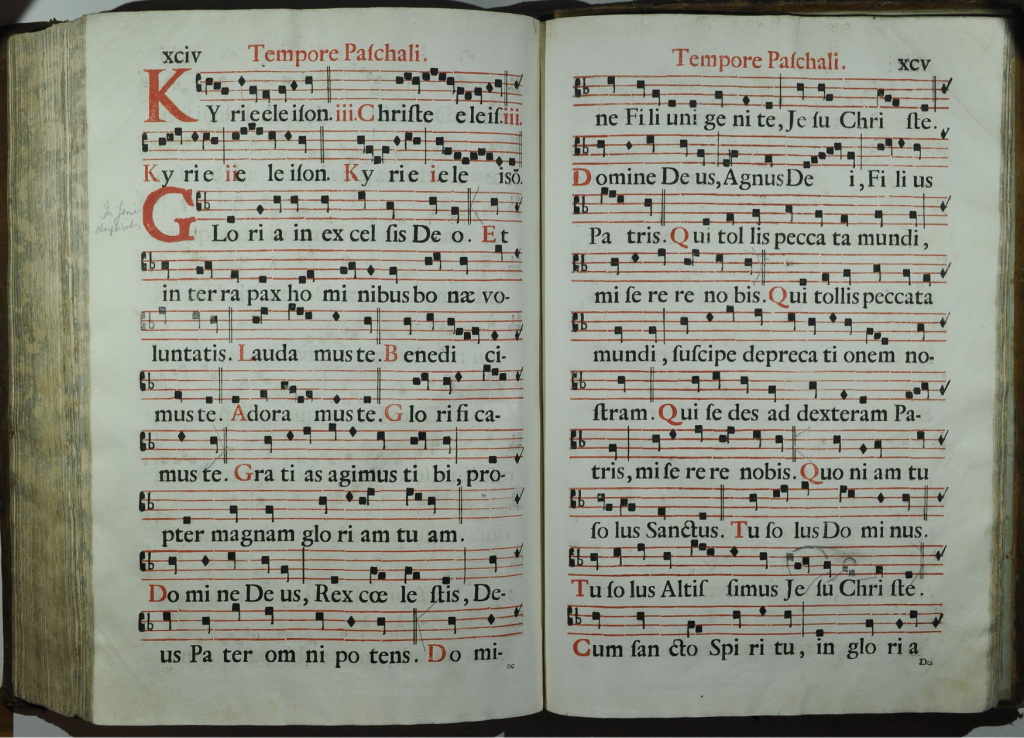 xciv Tempore Paſchali.
K Y rie eleiſon. iii. Chriſte eleiſ. iii.
Ky rie iie le iſon. Ky rie i e le iso.
G Lo ri a in ex cel ſis De o. Et
in ter ra pax ho mi nibus bo næ vo-
luntatis. Lauda mus te. Benedi ci-
mus te. Adora mus te. Glo ri fi ca-
mus te. Gra ti as agimus ti bi, pro-
pter magnam glo ri am tu am.
Do mi ne De us, Rex cœ le ſtis, De-
us Pa ter om ni po tens. Do mi-
ne
Tempore Paſchali. xcv
ne Fi li uni ge ni te, Je ſu Chri ſte.
Domine De us, Agnus De i, Fi li us
Pa tris. Qui tol lis pecca ta mundi,
mi ſe re re no bis. Qui tollis peccata
mundi, ſuſcipe depreca ti onem no-
ſtram. Qui ſe des ad dexteram Pa-
tris, mi ſe re re nobis. Quo ni am tu
ſo lus Sanctus. Tu ſo lus Do mi nus.
Tu ſo lus Altiſ ſimus Je ſu Chri ſte.
Cum ſan cto Spi ri tu, in glo ri a
Dei